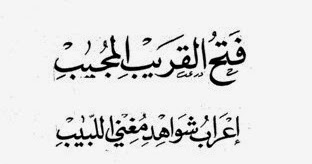 فَتْحُ القَرِيبِ المُجِيبِ
إِعْرَابُ شَوَاهِدِ مُغْنِي اللَّبِيبِ